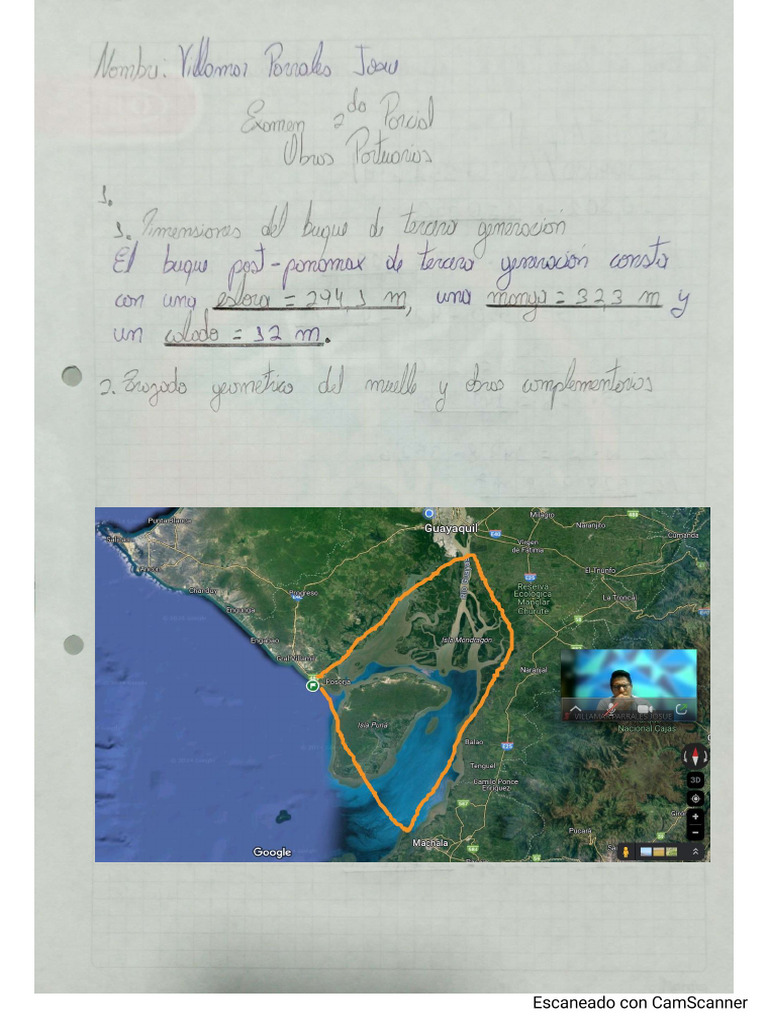 Nombre: Villamar Parrales Josue
Examen 2do Parcial
Obras Portuarias
1.
1. Dimensiones del buque de tercera generación
El buque post-panamax de tercera generación consta
con una eslora = 294,1 m, una manga = 32,3 m y
un calado = 12 m.
2. Trazado geometrico del muelle y obras complementarias
Guayaquil
Milagro
Naranjito
Cumanda
Virgen
de Fatima
E40
E25
El Triunfo
La Troncal
Reserva
Ecológica
Manglar
Churute
Chanduy
Progreso
Engunga
Engabao
Gral Villamil
Posorja
Isla Mondragon
Isla Puná
Naranjal
VILLAMAR PARRALES JOSUE
Nacional Cajas
Balao
E25
Tenguel
Camilo Ponce
Enríquez
Pucará
Machala
3D
Google
Escaneado con CamScanner